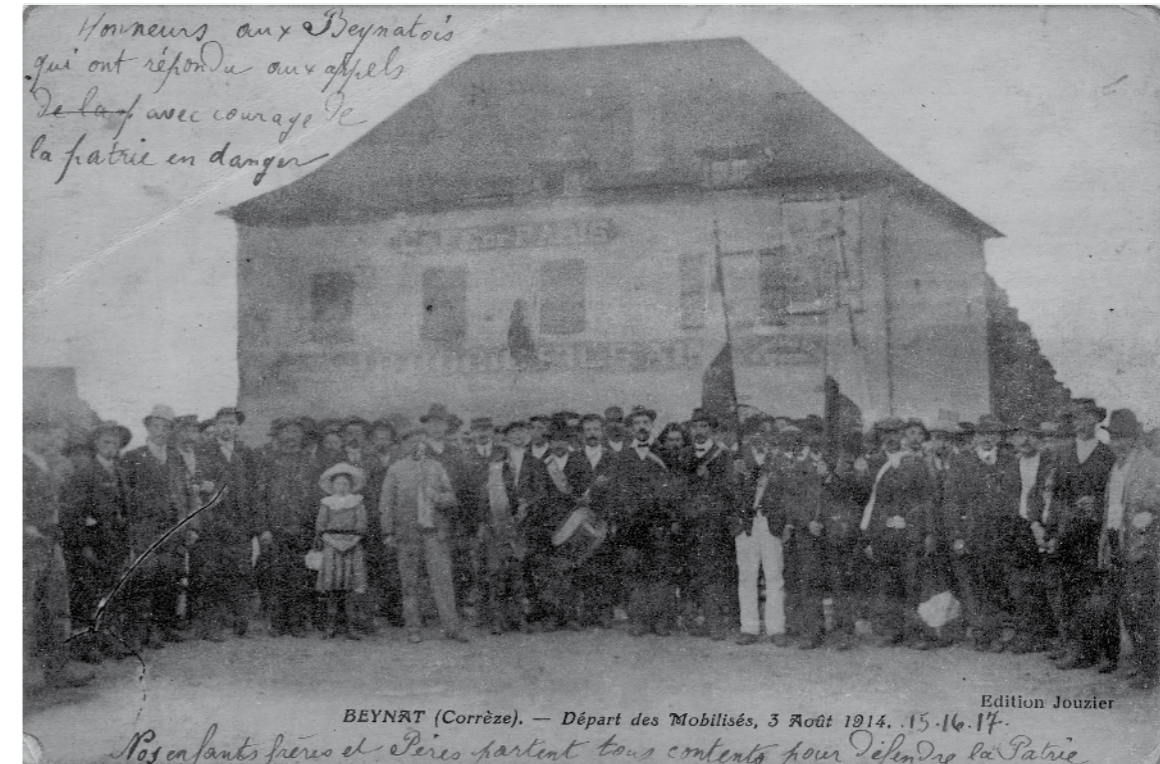 Honneurs aux Beynatois
qui ont répondu aux appels
de la p avec courage de
la patrie en danger
CAFÉ DE PARIS
Edition Jouzier
BEYNAT (Corrèze). — Départ des Mobilisés, 3 Août 1914. .15.16.17.
Nos enfants frères et Pères partent tous contents pour défendre la Patrie